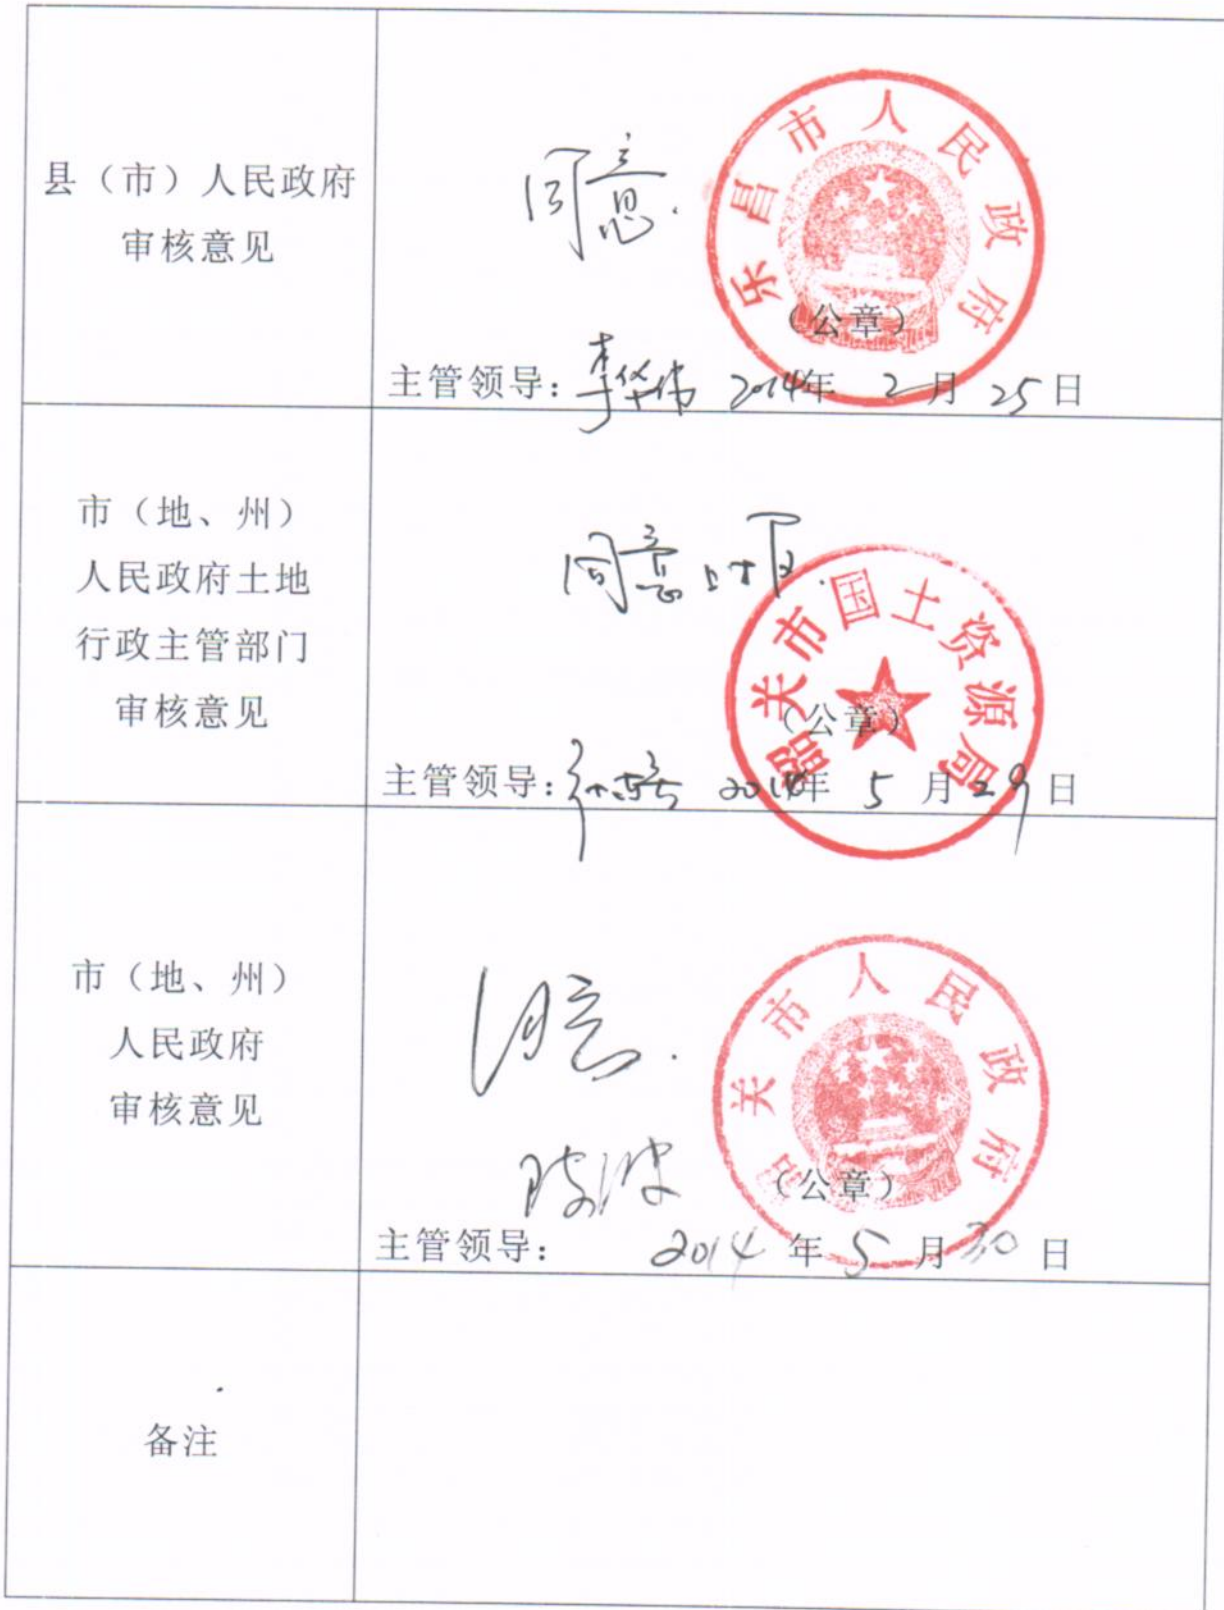 县（市）人民政府
审核意见
同意.
乐昌市人民政府
（公章）
主管领导：李华伟 2014年 2月 25日
市（地、州）
人民政府土地
行政主管部门
审核意见
同意上报.
韶关市国土资源局
（公章）
主管领导： 2014年 5月 29日
市（地、州）
人民政府
审核意见
同意.
韶关市人民政府
（公章）
主管领导： 2014年 5月 30日
备注